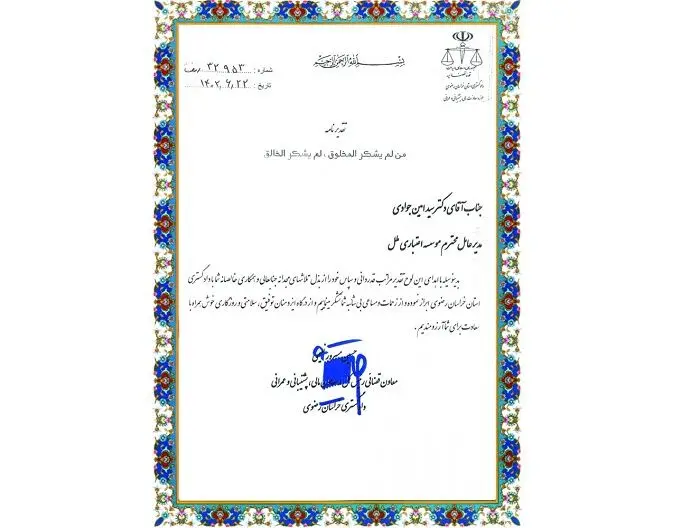 بسم الله الرحمن الرحیم
قوه قضاییه
دادگستری استان خراسان رضوی
شماره : ۳۲۹۵۳
تاریخ : ۱۴۰۲,۶,۲۲
تقدیرنامه
من لم یشکر المخلوق ، لم یشکر الخالق
جناب آقای دکتر سید امین جوادی
مدیرعامل محترم موسسه اعتباری ملل
بدینوسیله با اهدای این لوح تقدیر مراتب قدردانی و سپاس خود را از بذل تلاشهای مجدانه جنابعالی و همکاری خالصانه شما با دادگستری
استان خراسان رضوی ابراز نموده و از زحمات و مساعی بی شائبه شما تشکر مینماییم و از درگاه ایزد منان توفیق ، سلامتی و روزگاری خوش همراه با
سعادت برای شما آرزومندیم .
معاون قضائی مالی، پشتیبانی و عمرانی
دادگستری خراسان رضوی